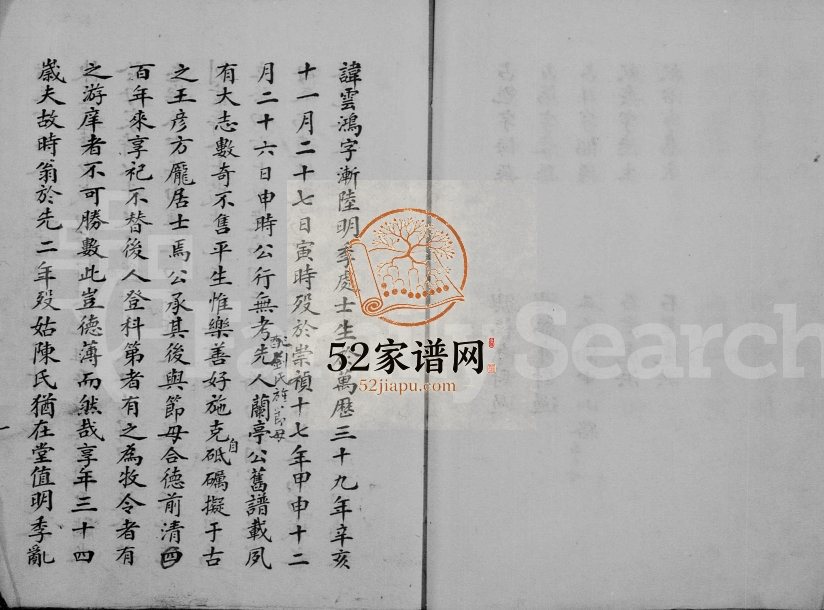 諱雲鴻字漸陸明季處士生萬歷三十九年辛亥
十一月二十七日寅時歿於崇禎十七年甲申十二
月二十六日申時公行無考先人蘭亭公舊譜載夙
配劉氏旌節母
有大志數奇不售平生惟樂善好施克自砥礪擬于古
之王彥方龐居士焉公承其後與節母合德前清四
百年來享祀不替後人登科第者有之為牧令者有
之游庠者不可勝數此豈德薄而然哉享年三十四
歲夫故時翁於先二年歿姑陳氏猶在堂值明季亂
52家谱网
52jiapu.com
Family Search